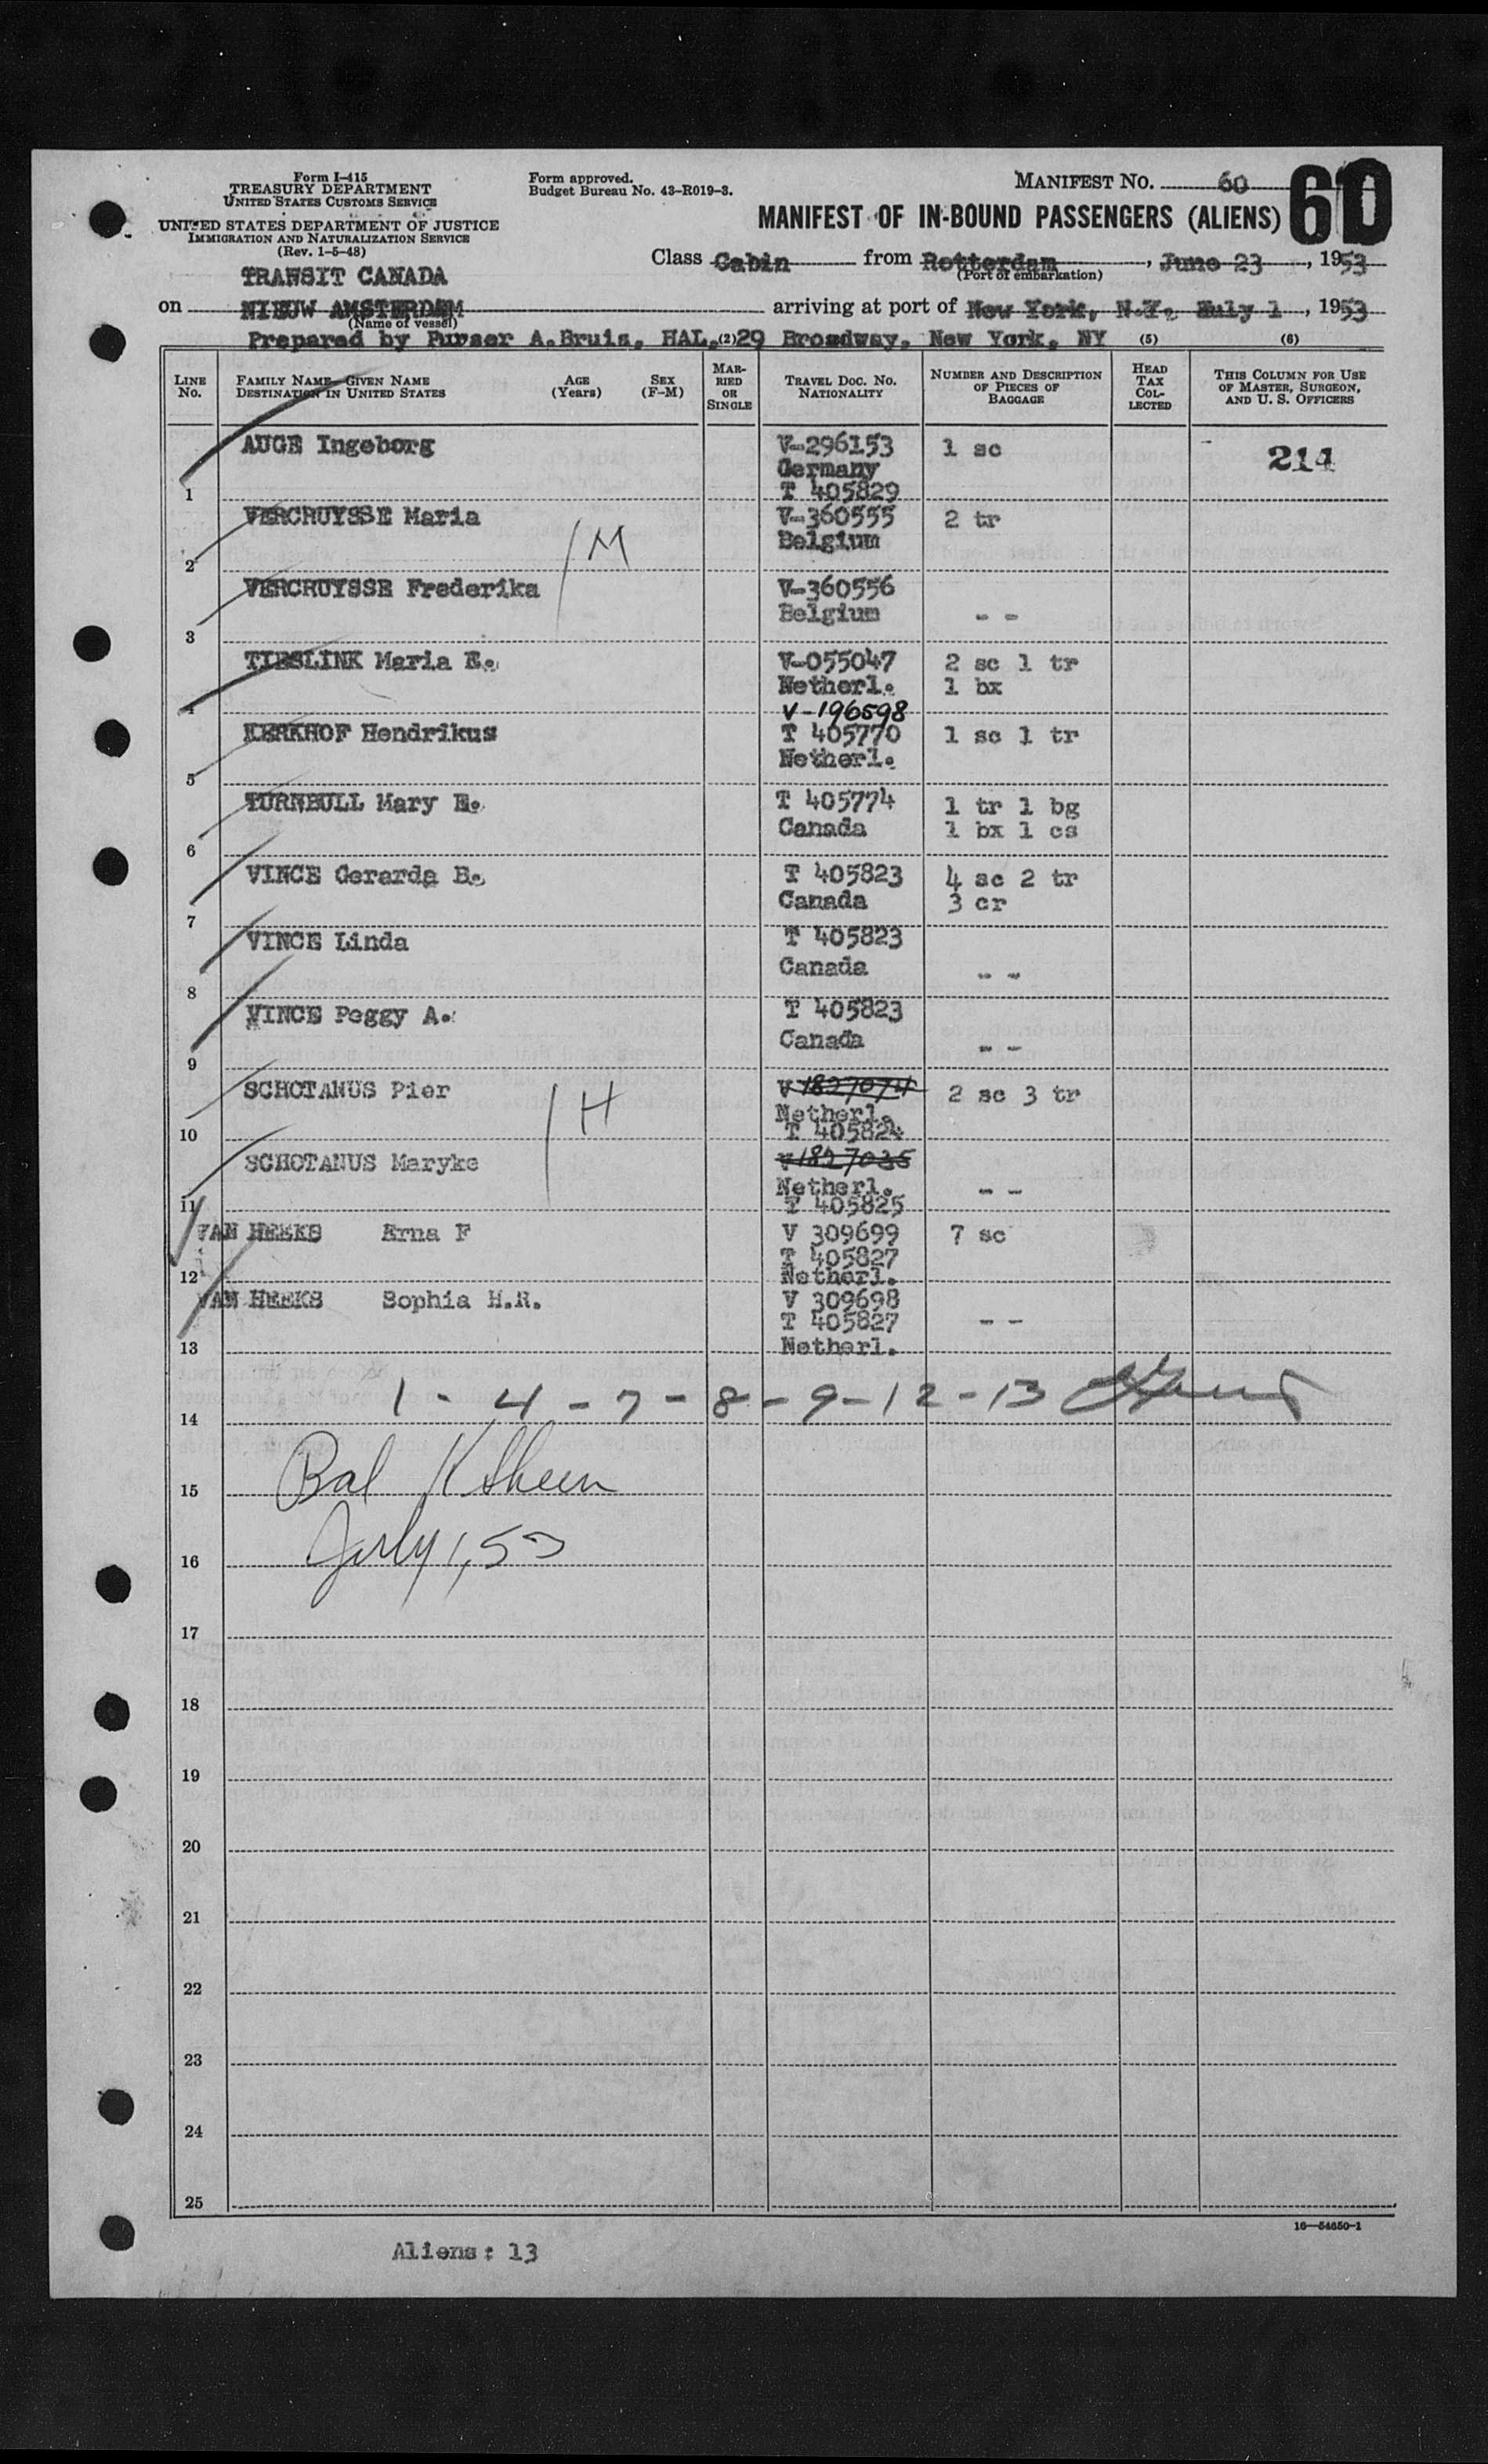 Form I-415
TREASURY DEPARTMENT
UNITED STATES CUSTOMS SERVICE
UNITED STATES DEPARTMENT OF JUSTICE
IMMIGRATION AND NATURALIZATION SERVICE
(Rev. 1-5-48)
Form approved.
Budget Bureau No. 43-R019-3.
MANIFEST NO. 60
60
MANIFEST OF IN-BOUND PASSENGERS (ALIENS)
TRANSIT CANADA
Class Cabin from Rotterdam, June 23, 1953
(Port of embarkation)
on NIEUW AMSTERDAM arriving at port of New York, N.Y. July 1, 1953
(Name of vessel)
Prepared by Purser A.Bruis, HAL, (2) 29 Broadway, New York, NY (5) (6)
LINE NO. FAMILY NAME—GIVEN NAME DESTINATION IN UNITED STATES AGE (Years) SEX (F-M) MARRIED OR SINGLE TRAVEL DOC. NO. NATIONALITY NUMBER AND DESCRIPTION OF PIECES OF BAGGAGE HEAD TAX COLLECTED THIS COLUMN FOR USE OF MASTER, SURGEON, AND U. S. OFFICERS
AUGE Ingeborg V-296153 1 sc 214
Germany
1 T 405829
VERCRUYSSE Maria V-360555 2 tr
M Belgium
2
VERCRUYSSE Frederika V-360556
Belgium - -
3
TIESLINK Maria E. V-055047 2 sc 1 tr
Netherl. 1 bx
4 V-196598
KERKHOF Hendrikus T 405770 1 sc 1 tr
Netherl.
5
TURNBULL Mary E. T 405774 1 tr 1 bg
Canada 1 bx 1 cs
6
VINCE Gerarda B. T 405823 4 sc 2 tr
Canada 3 cr
7
VINCE Linda T 405823
Canada - -
8
VINCE Peggy A. T 405823
Canada - -
9
SCHOTANUS Pier V 1827074 2 sc 3 tr
H Netherl.
10 T 405824
SCHOTANUS Maryke V 1827035
Netherl. - -
11 T 405825
VAN HEEKS Erna F V 309699 7 sc
T 405827
12 Netherl.
VAN HEEKS Sophia H.R. V 309698
T 405827 - -
13 Netherl.
1 - 4 - 7 - 8 - 9 - 12 - 13
14
Bal
15
July 1, 53
16
17
18
19
20
21
22
23
24
25
16—54650-1
Aliens: 13